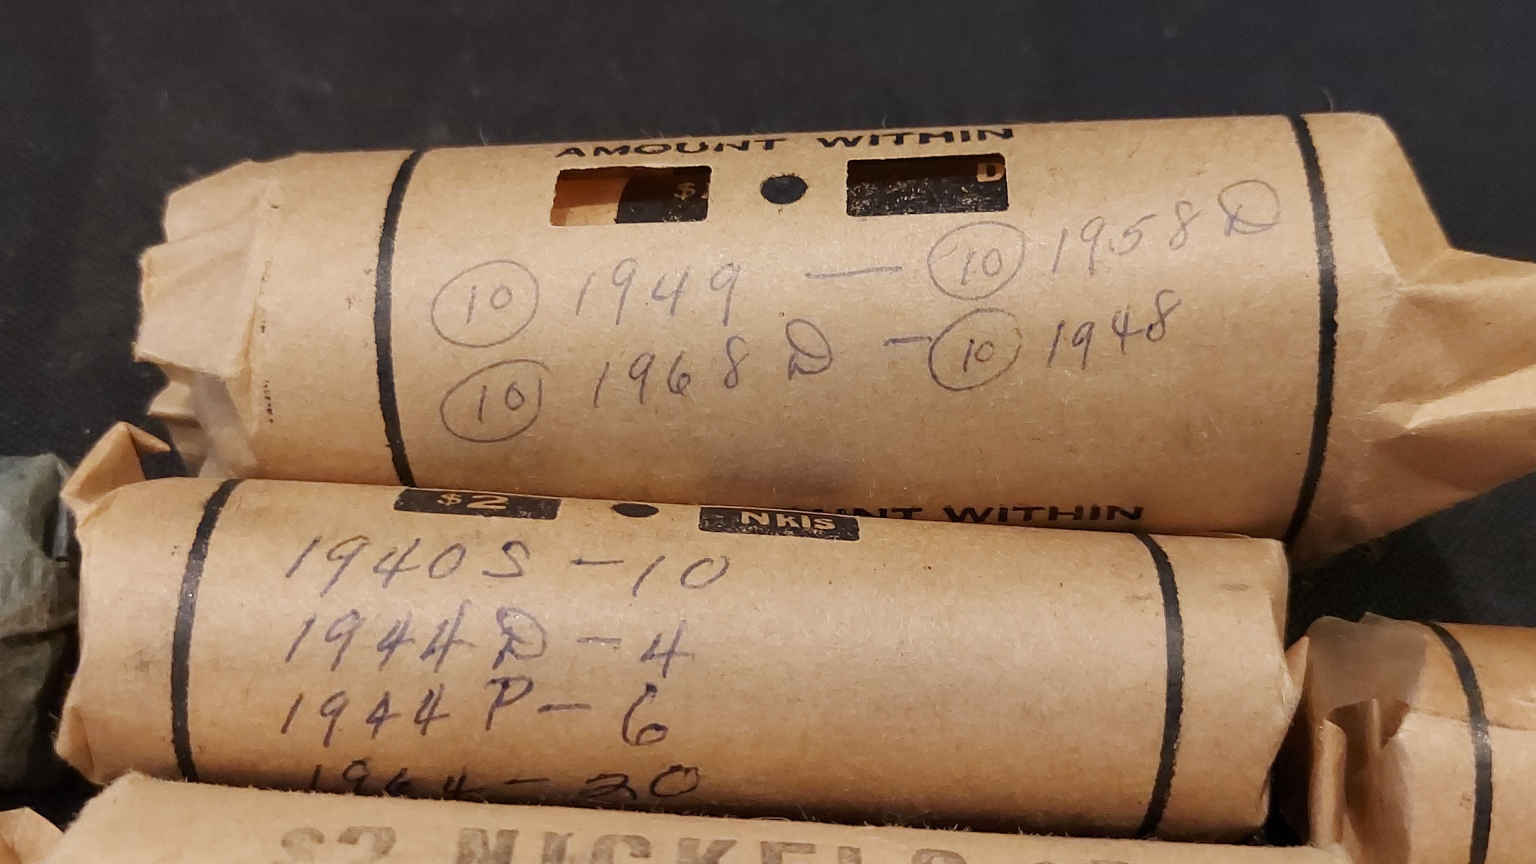 AMOUNT WITHIN
$ D
10 1949 — 10 1958 D
10 1968 D - 10 1948
$2 NKLS UNT WITHIN
1940 S - 10
1944 D - 4
1944 P - 6
1964 - 20
$2 NICKELS